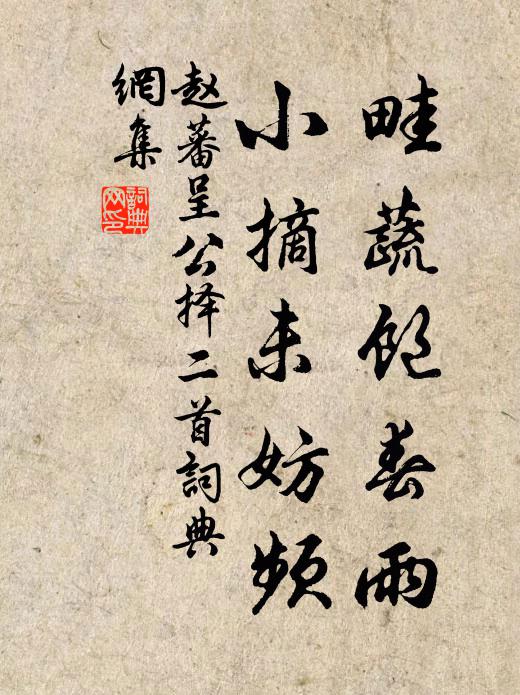 畦蔬飽春雨
小摘未妨頻
赵蕃呈公择二首詞典
網集
詞典网印